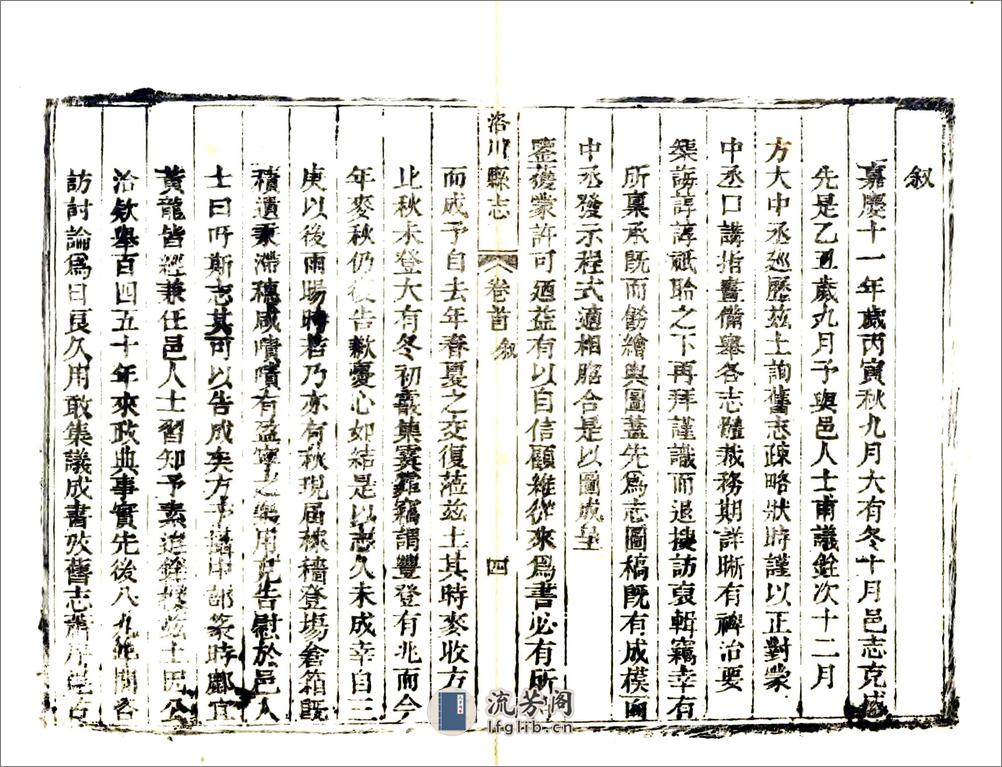 叙
嘉慶十一年歲丙寅秋九月大有冬十月邑志克成
先是乙丑歲九月予與邑人士甫議銓次十二月
方大中丞廵歷茲土詢舊志疎略狀時謹以正對蒙
中丞口講指畫備舉各志體裁務期詳晰有裨治要
榘誨諄諄祇聆之下再拜謹識而退摉訪裒輯竊幸有
所稟承既而飭繪輿圖蓋先爲志圖稿既有成模而
中丞發示程式適相脗合是以圖成呈
鑒獲蒙許可廼益有以自信顧維從來爲書必有所
而成予自去年春夏之交復蒞茲土其時麥收方
比秋未登大有冬初霰集霙霏竊謂豐登有兆而今
年麥秋仍復告歉憂心如結是以志久未成幸自三
庚以後雨暘時若乃亦有秋現届秼穡登場倉箱既
積遺秉滯穗咸嘖嘖有盈寧之樂用克告慰於邑人
士曰吁斯志其可以告成矣方予攝中部篆時鄜宜
黃龍皆經兼任邑人士習知予素
茲土民公
洽欸舉百四五十年來政典事實先後八九
訪討論爲日良久用敢集議成書攷舊志
洛川縣志
卷首
叙
四
流芳阁
lfglib.cn